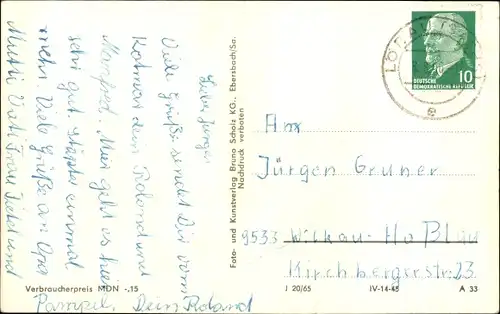 Lieber Jürgen
Viele Grüße sendet Dir vom
Kotmar dein Roland und
Manfred. Mir geht es hier
sehr gut. einmal
mehr. Viele Grüße an Opa
Mutti Vati Frau und
Pampel, Dein Roland
Foto- und Kunstverlag Bruno Scholz KG., Ebersbach/Sa.
Nachdruck verboten
DEUTSCHE
DEMOKRATISCHE REPUBLIK
10
An
Jürgen Gruner
9533 Wilkau-Ha
Kirchbergerstr. 23
Verbraucherpreis MDN -.15
J 20/65
IV-14-45
A 33